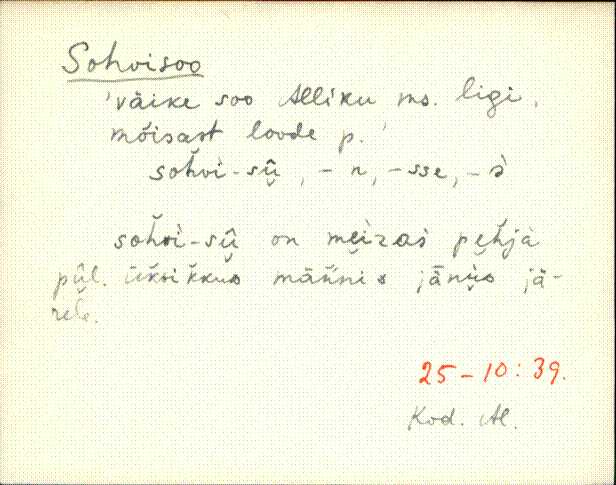 Sohvisoo
'väike soo Alliku ms. ligi,
mõisast loode p.'
soh̆vì-sū̬, -n, -sse, -s̀
soh̆vì-sū̬ on me̬i̬zas̀ pe̬h̆jà
pū̬l. ük̆sik̆kus mäñ̆nis jänu̬s jä-
rele.
25-10:39.
Kod. Al.